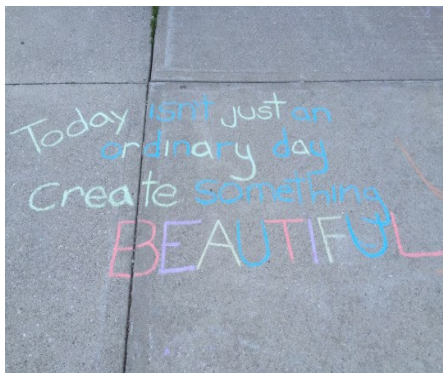 Today isnt just an
ordinary day
create something
BEAUTIFUL